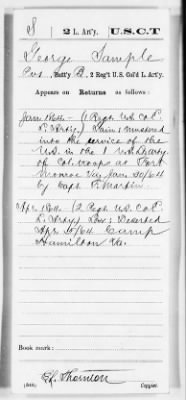 S 2 L. Art'y. U.S.C.T
George Sample
Pvt., Batt'y B, 2 Reg't U.S. Col'd L. Art'y.
Appears on Returns as follows:
Jan 1864 (1 Regt US Col
L. Arty.) Gain: Mustered
into the service of the
U.S. in the 1 U.S. Batty
of Col. troops at Fort
Monroe Va Jan 20/64
by Capt. P. Martin
Apr 1864 (2 Regt US Col
L. Arty) Loss: Deserted
Apr 10/64 Camp
Hamilton Va.
Book mark:
Thornton
(546) Copyist.